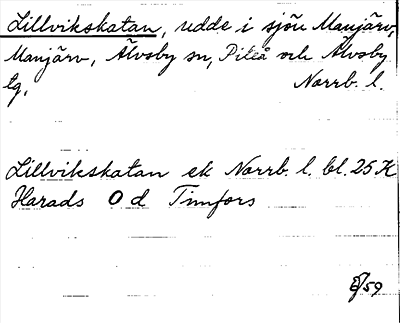 Lillvikskatan, udde i sjön Manjärv,
Manjärv, Älvsby sn, Piteå och Älvsby
tg, Norrb. l.
Lillvikskatan ek Norrb. l. bl. 25 K
Harads O d Timfors
/59